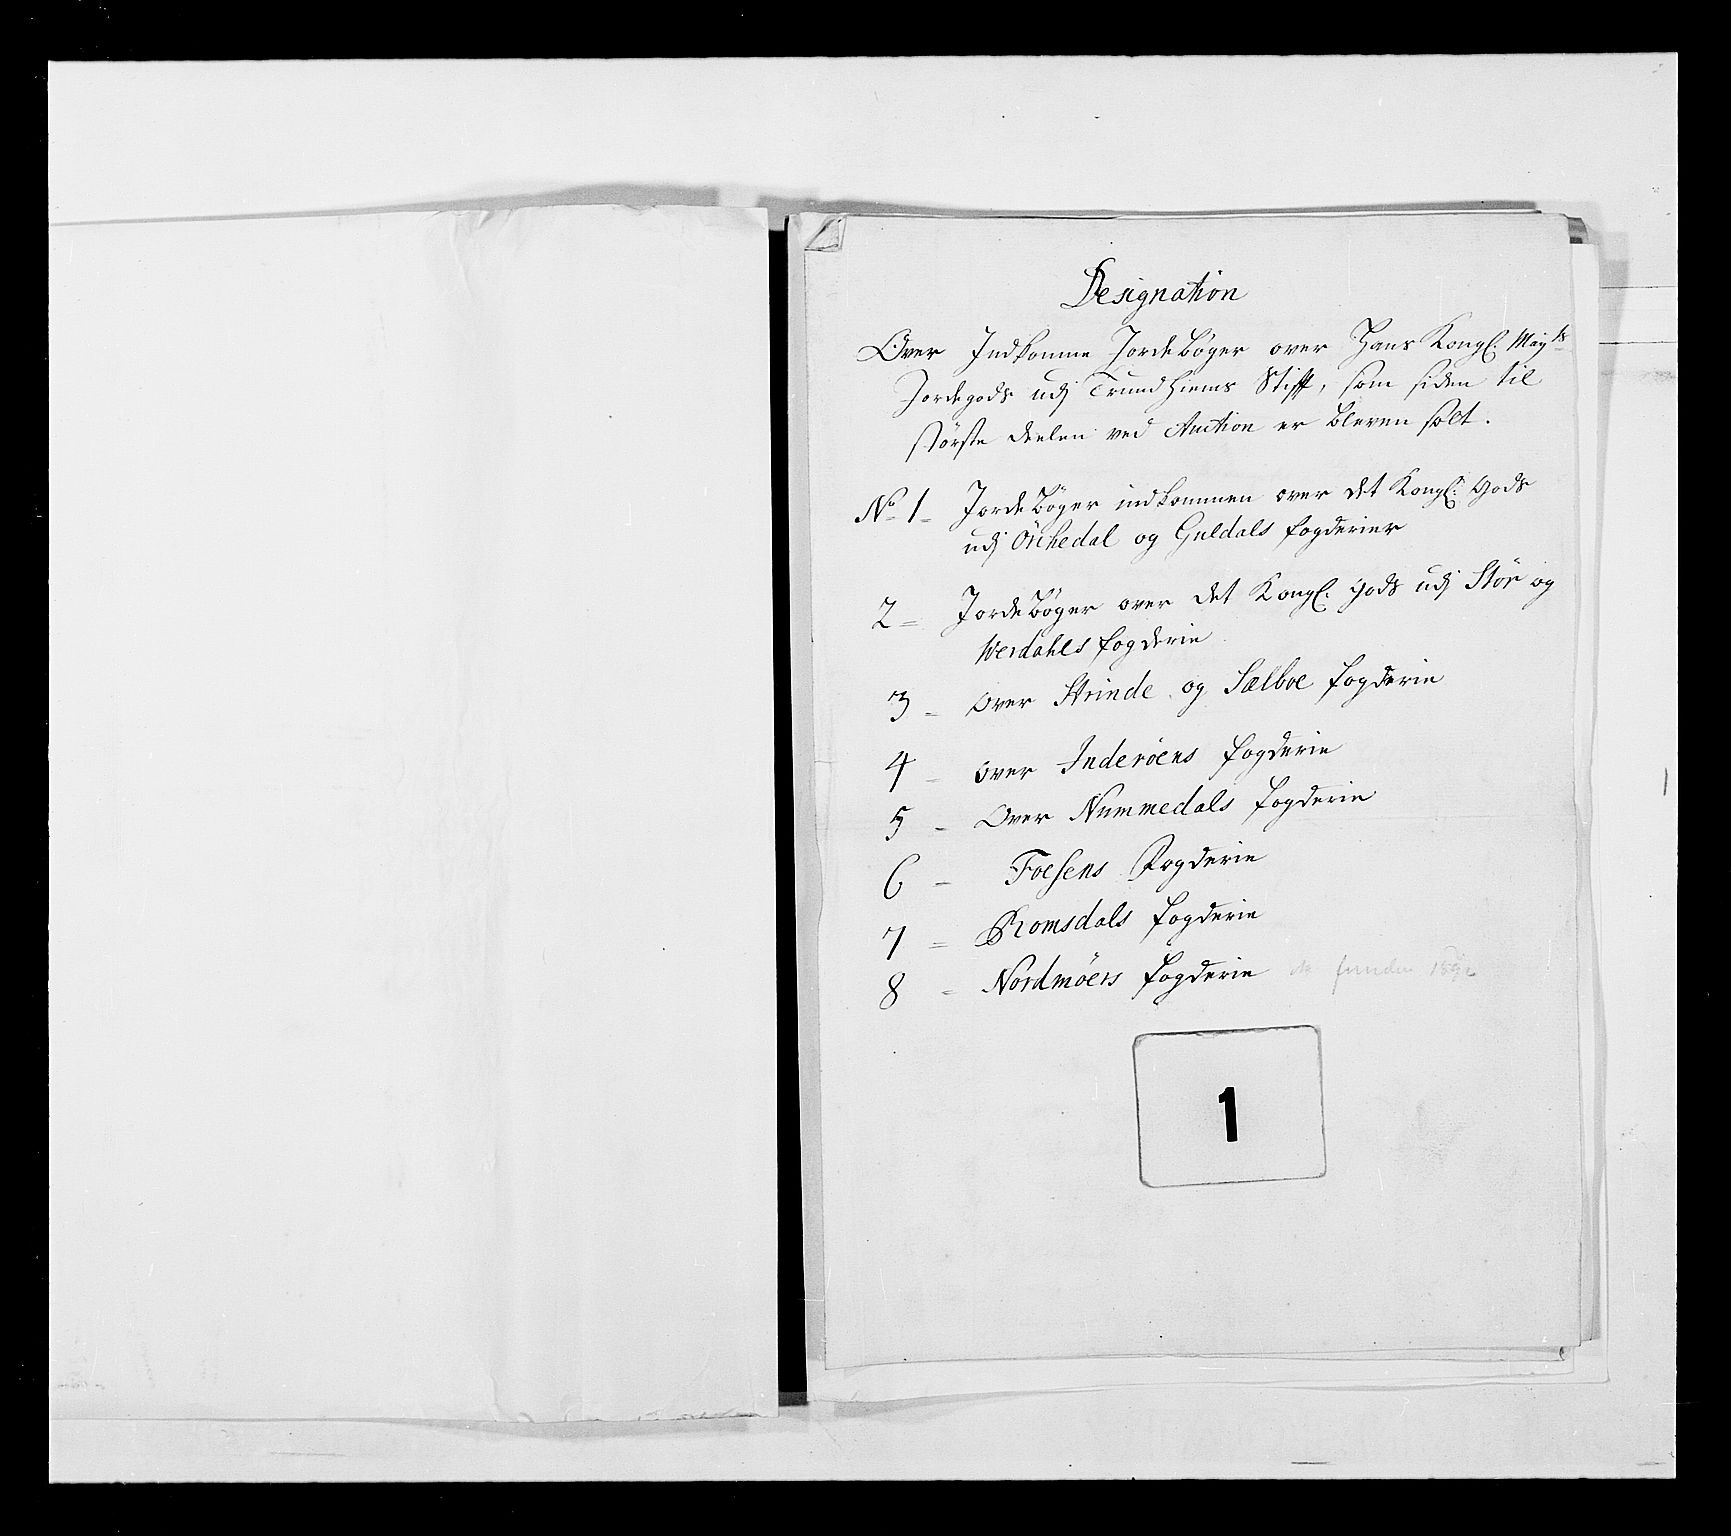 Designation
Over Indkomne Jordebøger over Hans Kongl. Mayts
Jordegods udj Trundhiems Stift, som siden til
største deelen ved Auction er bleven solt.
No 1 Jordebøger indkommen over det Kongl: Gods
udj Örchedal og Guldals fogderier
2 Jordebøger over det Kongl. Gods udj Stör og
Werdahls fogderie
3 over Strinde og Sælboe fogderie
4 over Inderöens fogderie
5 Over Nummedals fogderie
6 Foesens Fogderie
7 Romsdals fogderie
8 Nordmöers fogderie funden
1